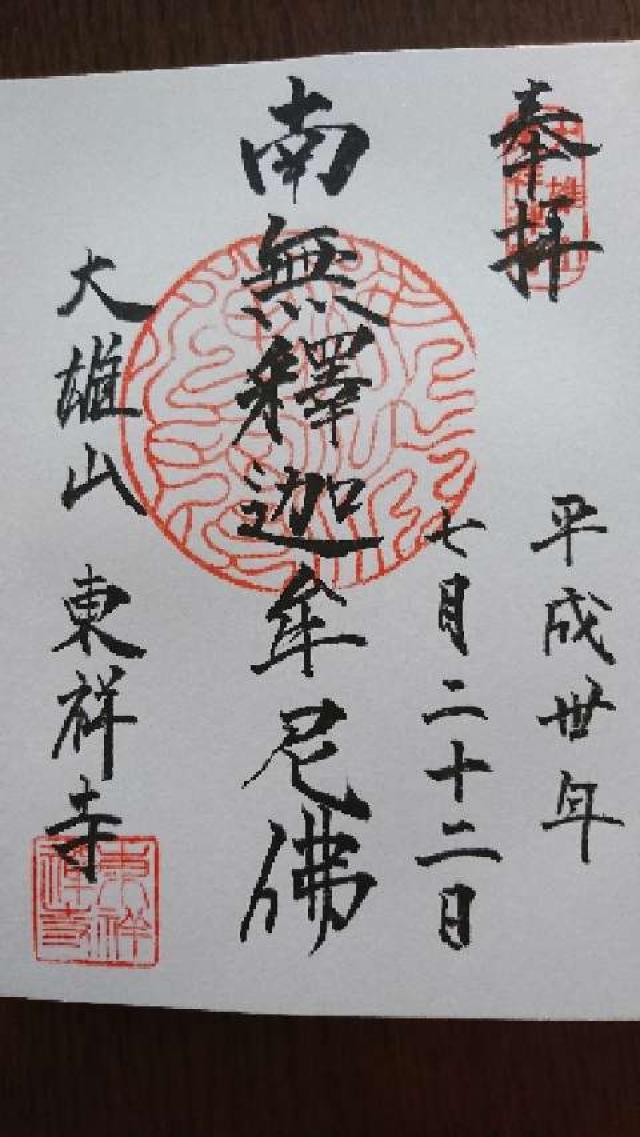 奉拝
平成丗年
七月二十二日
南無釋迦牟尼佛
大雄山 東祥寺
東祥禅寺